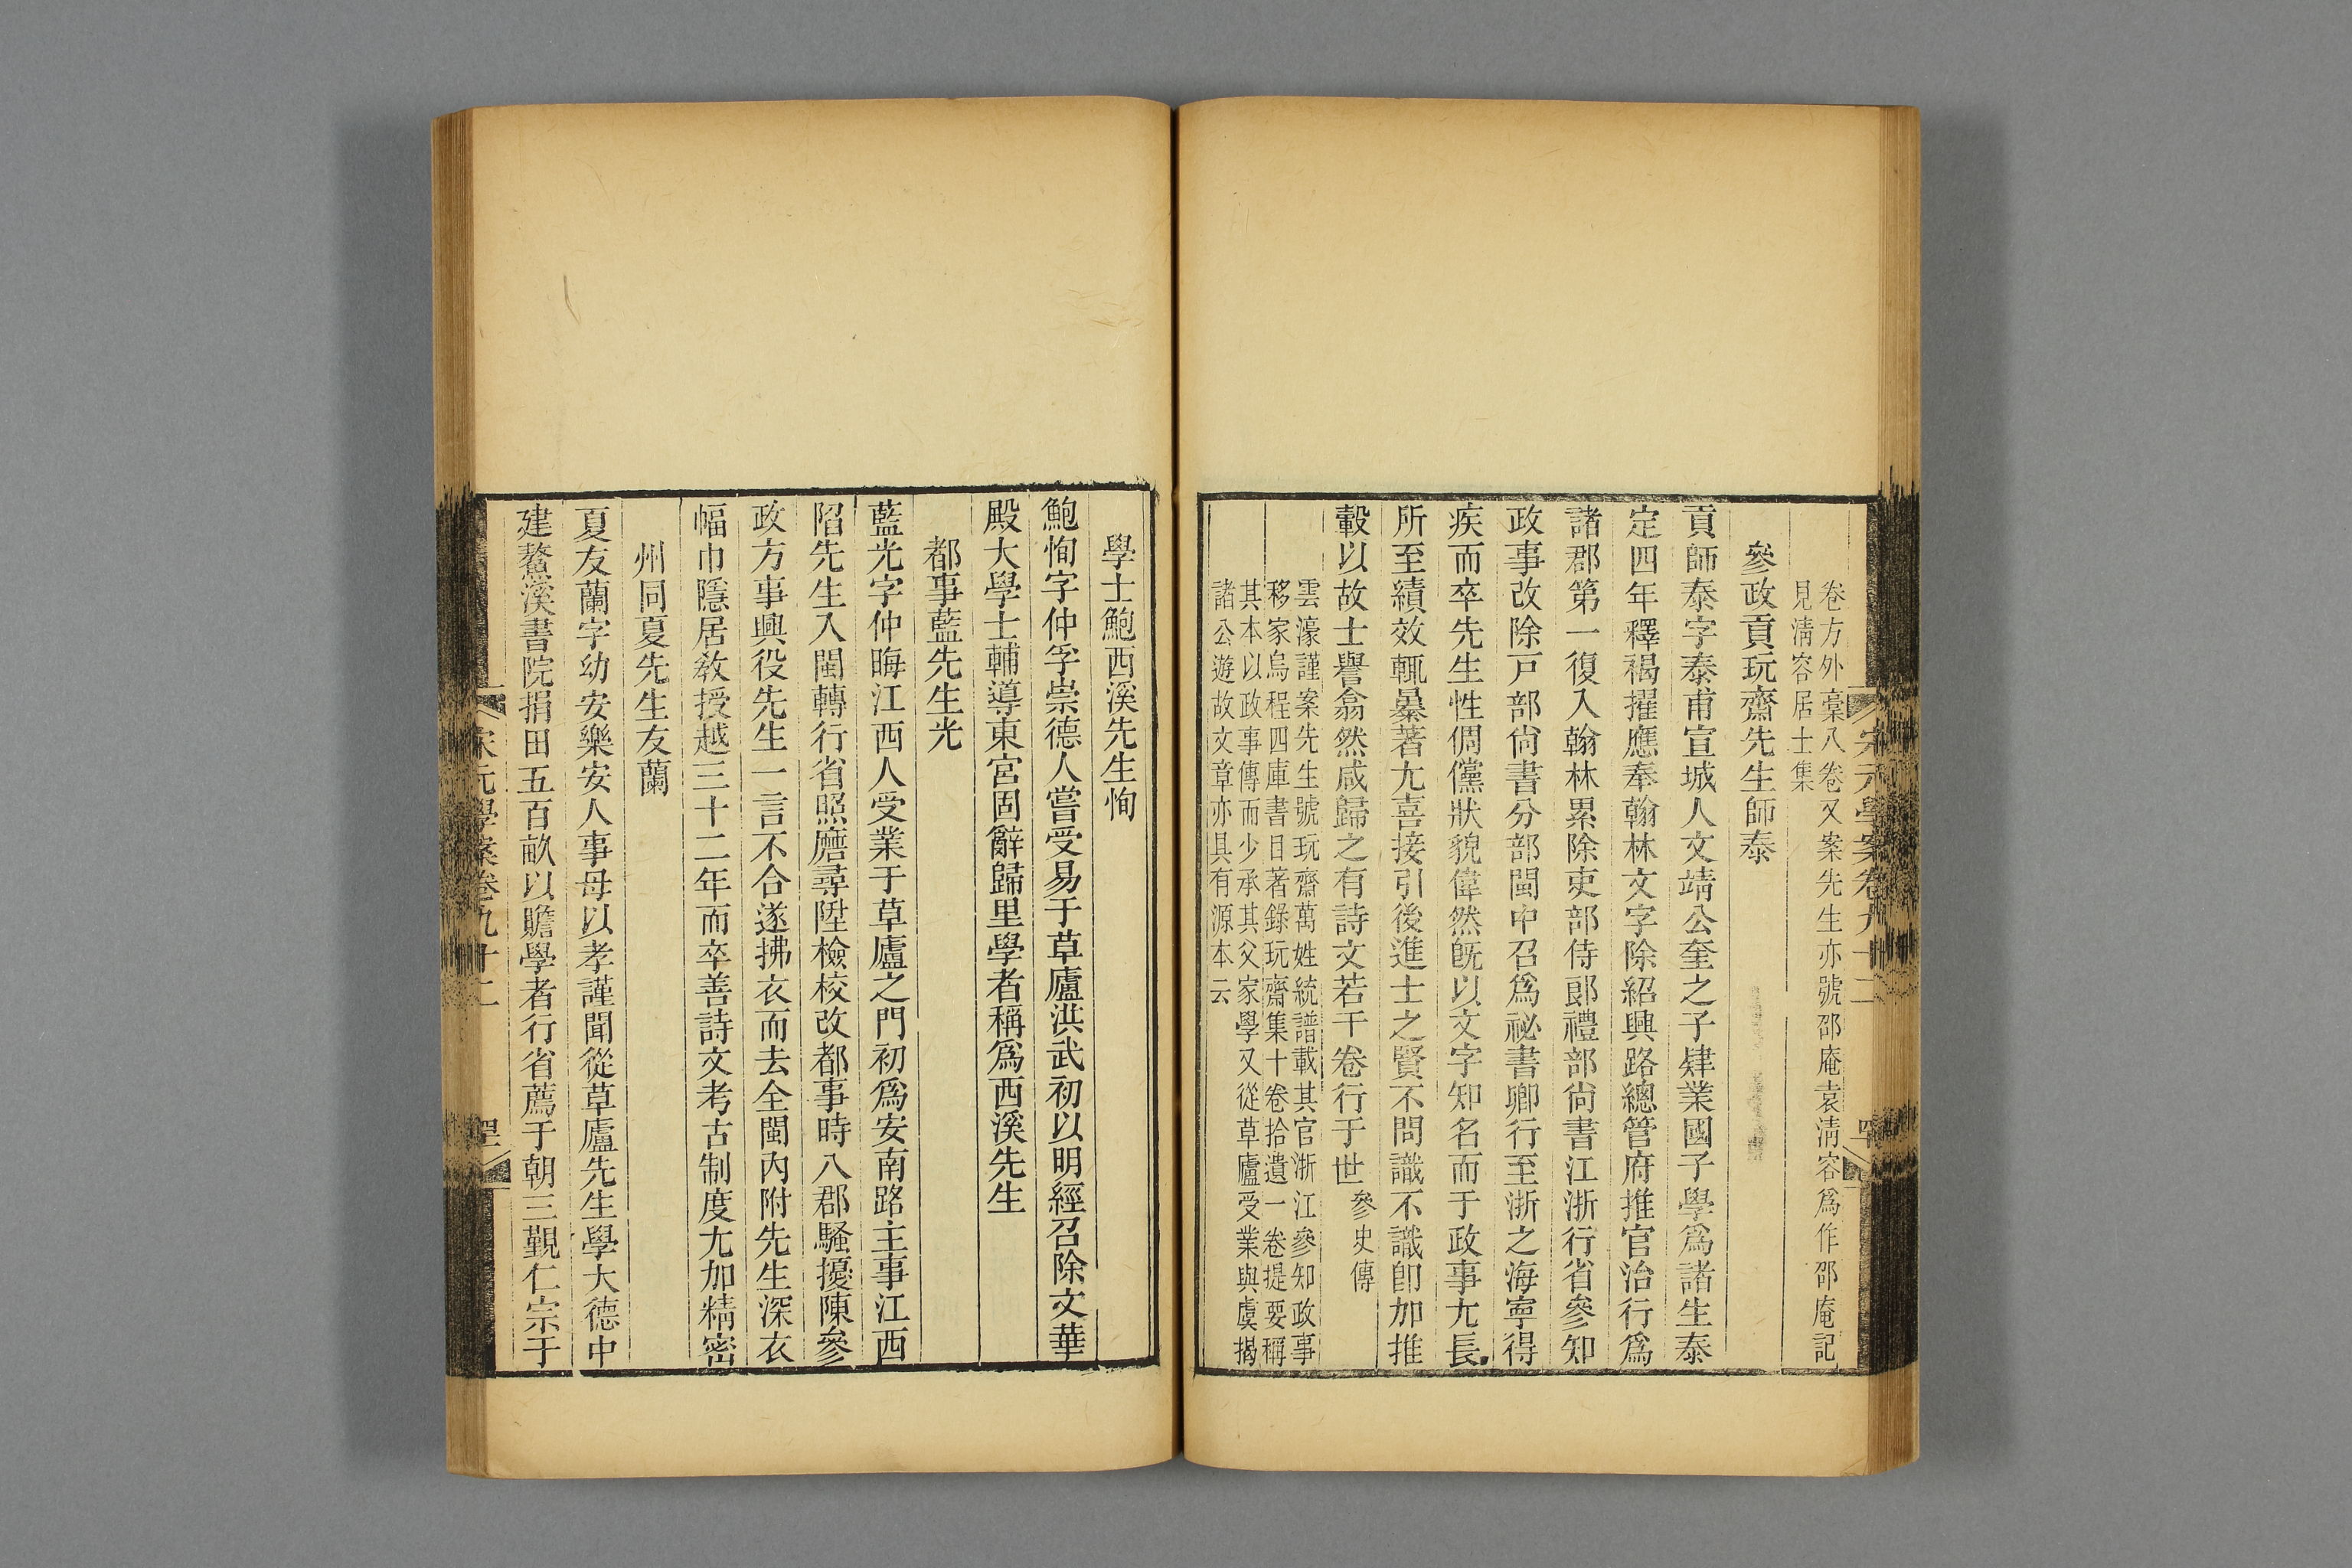 卷方外稾八卷又案先生亦號邵庵袁淸容爲作邵庵記
見淸容居士集
參政貢玩齋先生師泰
貢師泰字泰甫宣城人文靖公奎之子肄業國子學爲諸生泰
定四年釋褐擢應奉翰林文字除紹興路總管府推官治行爲
諸郡第一復入翰林累除吏部侍郞禮部尙書江浙行省參知
政事改除戸部尙書分部閩中召爲祕書卿行至浙之海寧得
疾而卒先生性倜儻狀貌偉然旣以文字知名而于政事尤長
所至績效輒暴著尤喜接引後進士之賢不問識不識卽加推
轂以故士譽翕然咸歸之有詩文若干卷行于世參史傳
雲濠謹案先生號玩齋萬姓統譜載其官浙江參知政事
移家烏程四庫書目著錄玩齋集十卷拾遺一卷提要稱
其本以政事傳而少承其父家學又從草廬受業與虞揭
諸公遊故文章亦具有源本云
宋元學案卷九十二
學士鮑西溪先生恂
鮑恂字仲孚崇德人嘗受易于草廬洪武初以明經召除文華
殿大學士輔導東宮固辭歸里學者稱爲西溪先生
都事藍先生光
藍光字仲晦江西人受業于草廬之門初爲安南路主事江西
陷先生入閩轉行省照磨尋陞檢校改都事時八郡騷擾陳參
政方事興役先生一言不合遂拂衣而去全閩內附先生深衣
幅巾隱居敎授越三十二年而卒善詩文考古制度尤加精密
州同夏先生友蘭
夏友蘭字幼安樂安人事母以孝謹聞從草廬先生學大德中
建鰲溪書院捐田五百畝以贍學者行省薦于朝三覲仁宗于
宋元學案卷九十二